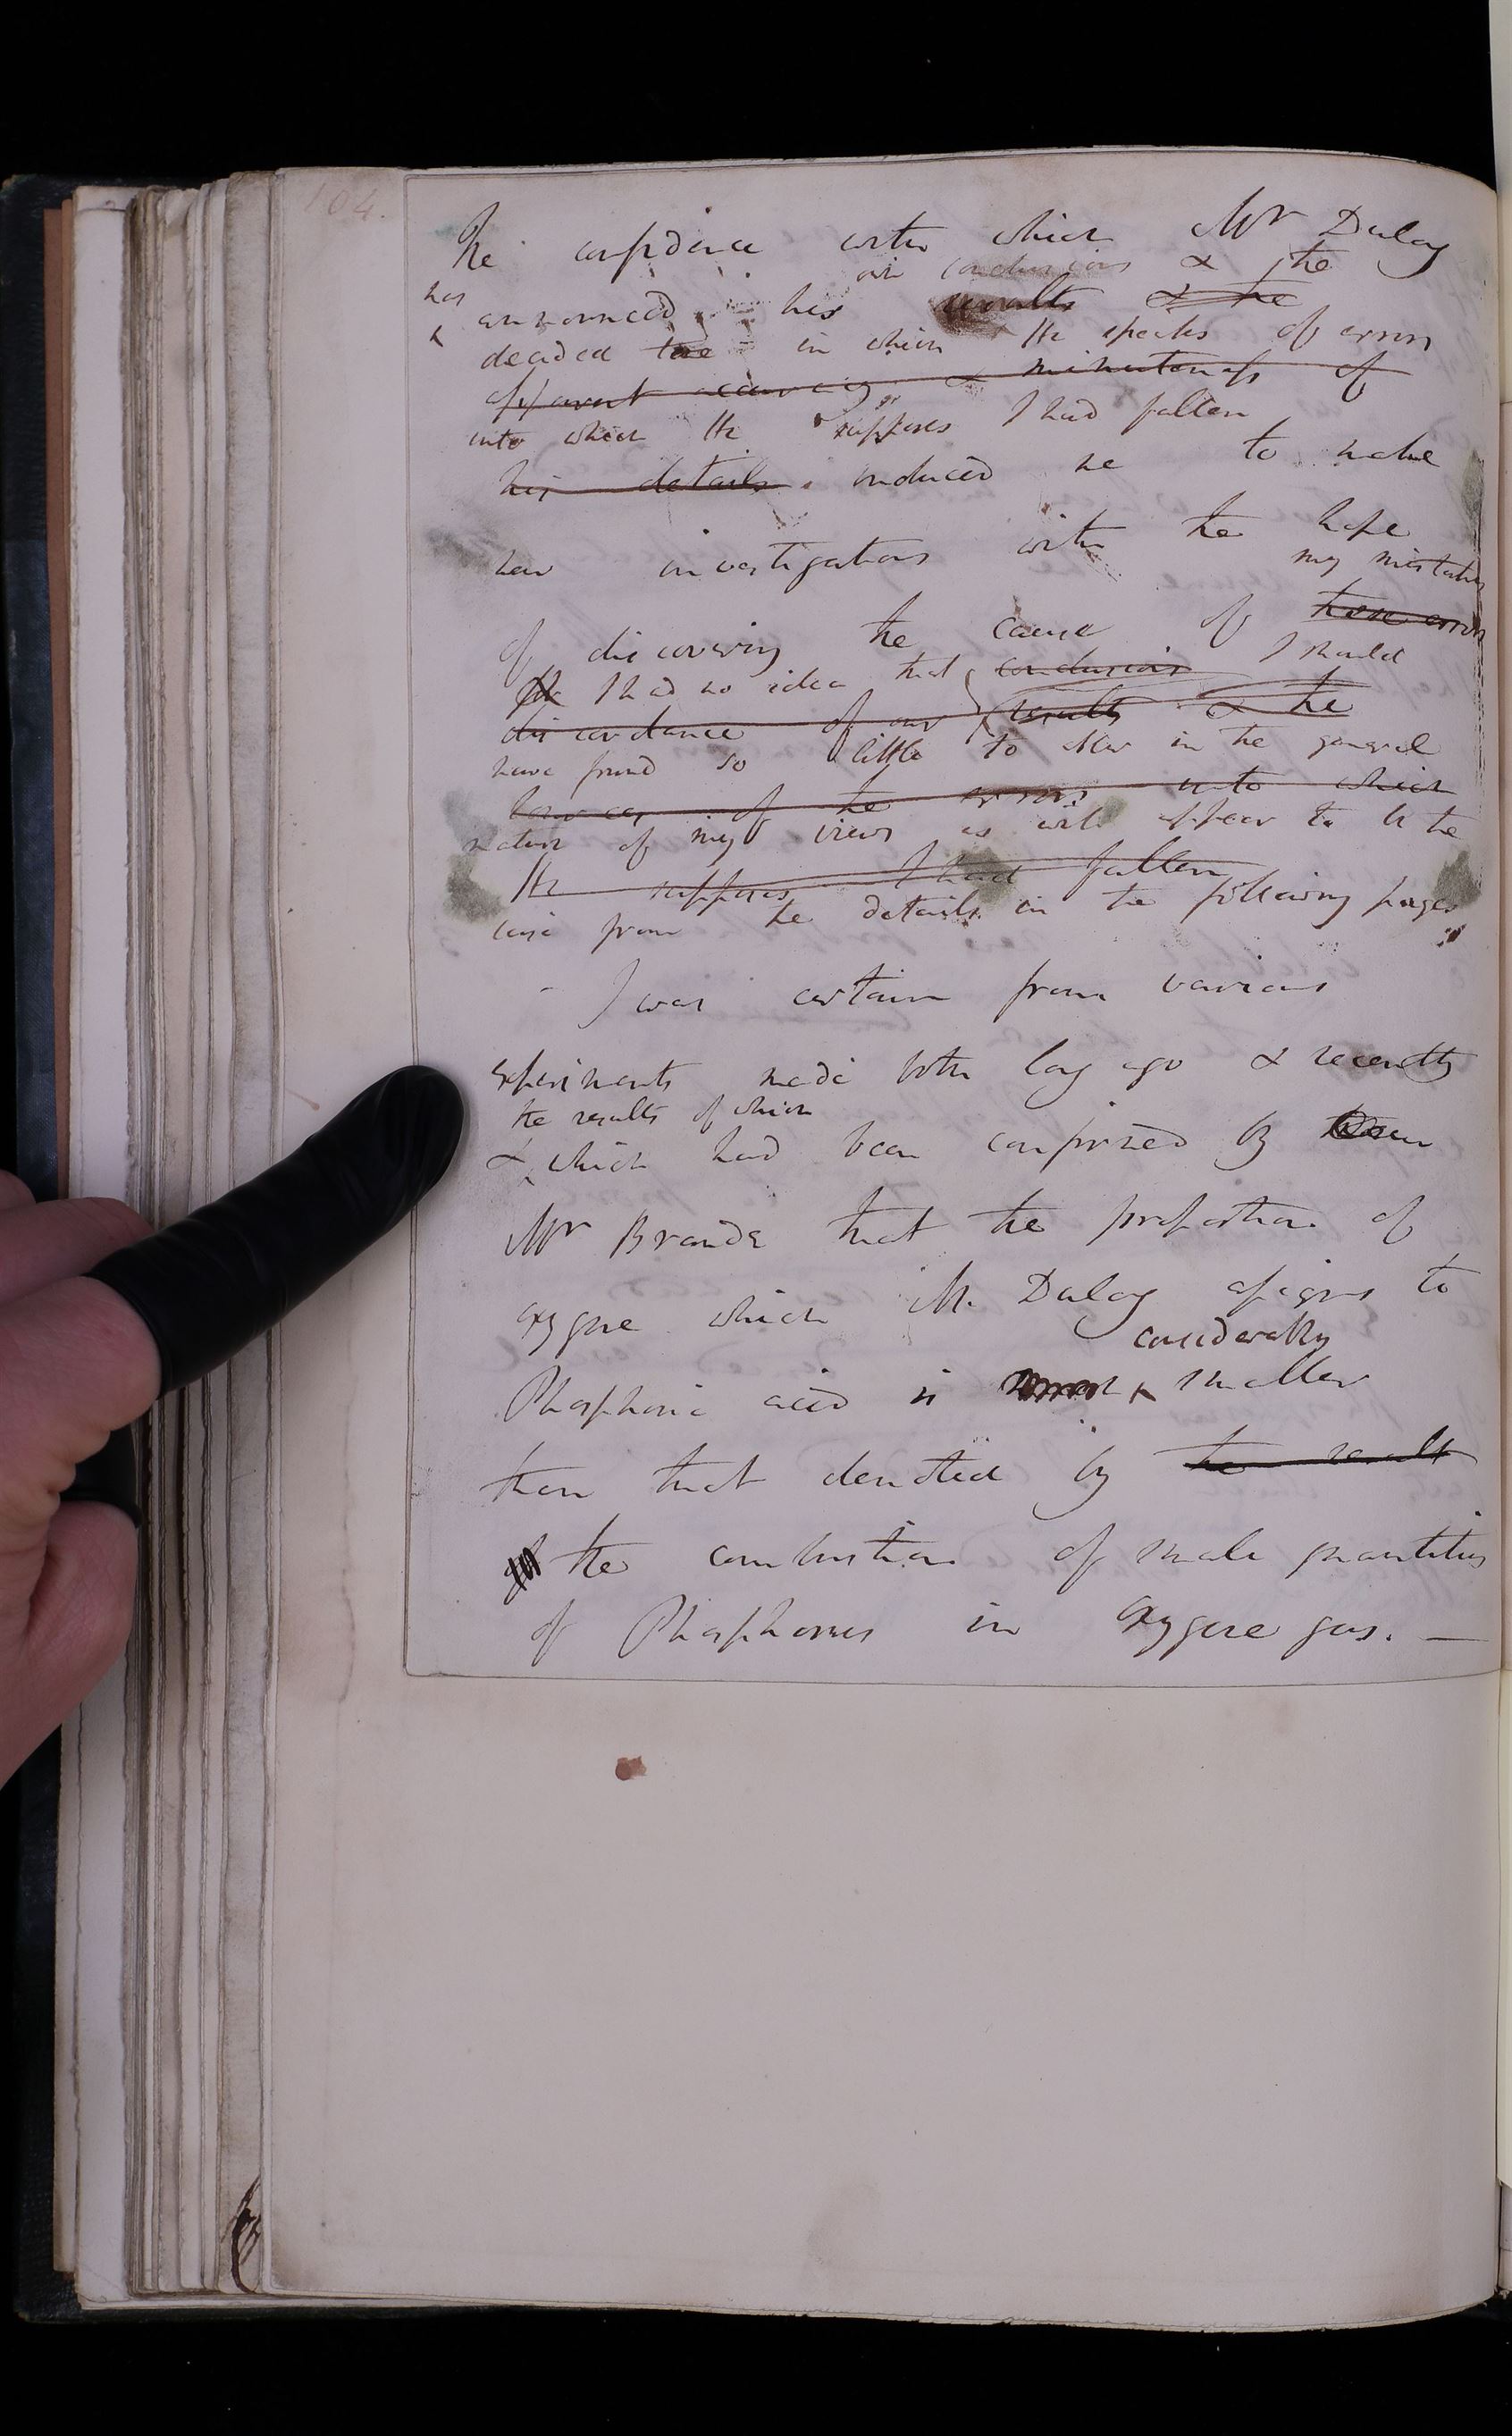 104.
The confidence with which Mr Dulong
conclusions & the
has
announced his results & the
decided tone in which He speaks of errors
apparent accuracy & minuteness of
into which He supposes I had fallen
his details induced me to make
new investigations with the hope
my mistakes
of discovering the cause of these errors
I had no idea that conclusions I should
discordance of our results & the
have found so little to alter in the general
sources of the errors into which
nature of my views as will appear to be the
He supposes I had fallen
case from the details in the following pages
I was certain from various
experiments made both long ago & recently
the results of which
& which had been confirmed by
Mr Brande that the proportion of
oxygene which M. Dulong assigns to
considerably
Phosphoric acid is smaller
than that denoted by the result
the combustion of small quantities
of Phosphorus in oxygene gas. —